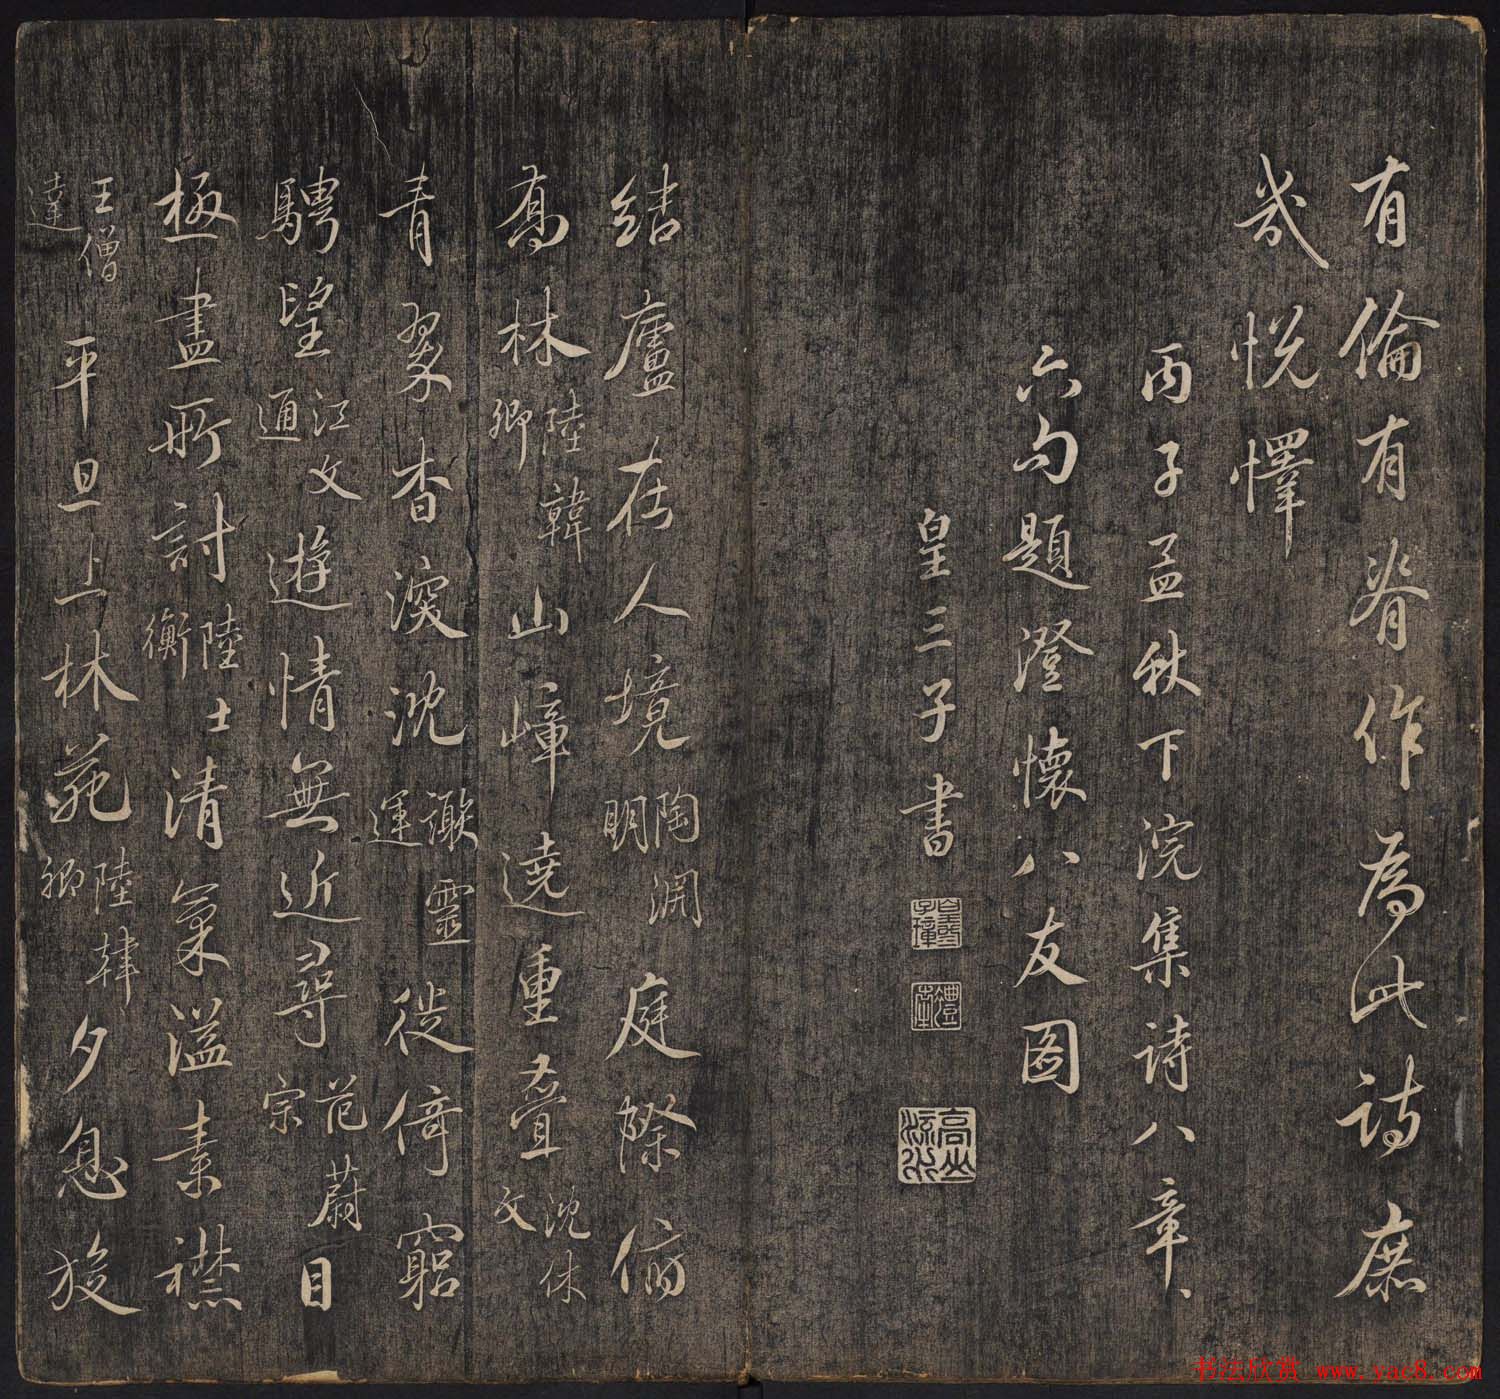 有倫有脊作為此詩庶
幾悅懌
丙子孟秋下浣集詩八章、
六句題澄懷八友圖
皇三子書
高山流水
結廬在人境陶淵明庭際俯
高林陸韓卿山嶂遠重疊沈休文
青翠杳深沈謝靈運徙倚窮
騁望江文通遊情無近尋范蔚宗目
極盡所討陸士衡清氣溢素襟
王僧達平旦上林苑陸韓卿夕息旋
书法欣赏 www.yac8.com